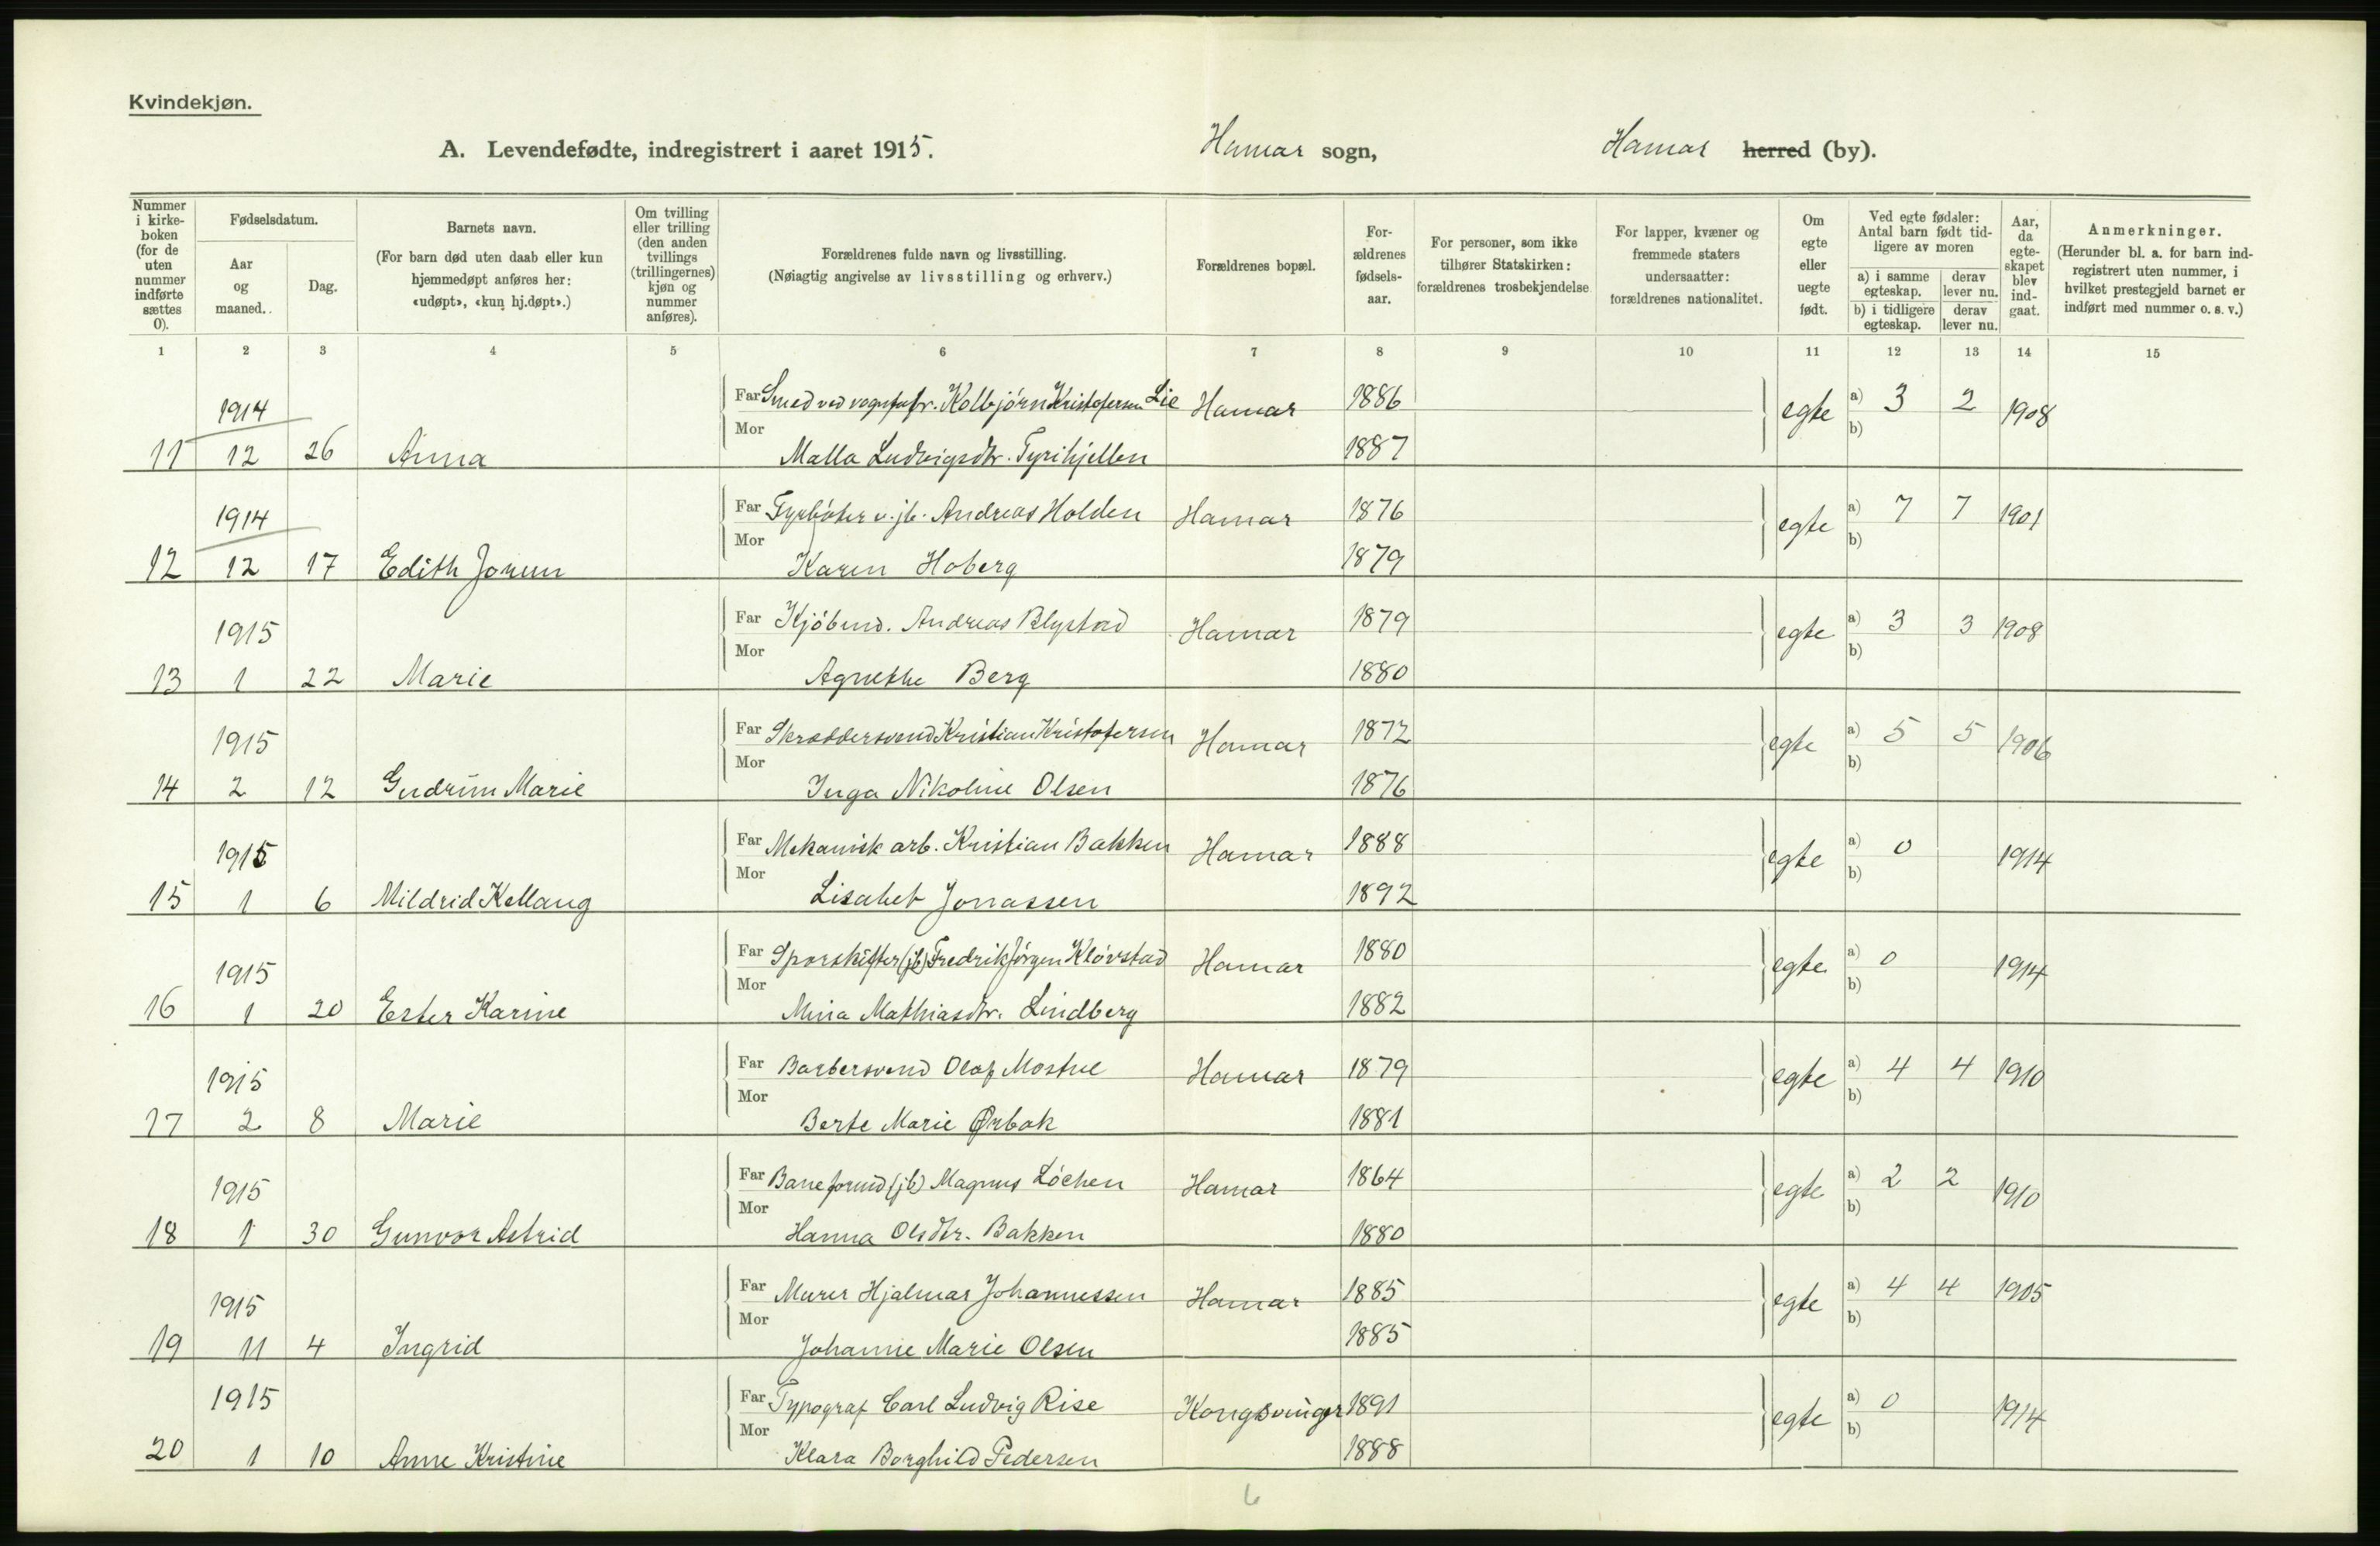 Kvindekjøn.
A. Levendefødte, indregistrert i aaret 1915. Hamar sogn, Hamar herred (by).
Nummer i kirkeboken (for de uten nummer indførte sættes 0).
Fødselsdatum.
Aar og maaned.
Dag.
Barnets navn.
(For barn død uten daab eller kun hjemmedøpt anføres her: «udøpt», «kun hj.døpt».)
Om tvilling eller trilling (den anden tvillings (trillingernes) kjøn og nummer anføres).
Forældrenes fulde navn og livsstilling.
(Nøiagtig angivelse av livsstilling og erhverv.)
Forældrenes bopæl.
Forældrenes fødselsaar.
For personer, som ikke tilhører Statskirken: forældrenes trosbekjendelse
For lapper, kvæner og fremmede staters undersaatter: forældrenes nationalitet.
Om egte eller uegte født.
Ved egte fødsler: Antal barn født tidligere av moren
a) i samme egteskap. derav lever nu.
b) i tidligere egteskap. derav lever nu.
Aar, da egteskapet blev indgaat.
Anmerkninger.
(Herunder bl. a. for barn indregistrert uten nummer, i hvilket prestegjeld barnet er indført med nummer o. s. v.)
1 2 3 4 5 6 7 8 9 10 11 12 13 14 15
1914 Far Smed ved vognfabr. Kolbjørn Kristofersen Lie Hamar 1886 egte a) 3 2 1908
b)
11 12 26 Anna Mor Malla Ludvigsdtr. Tyrihjellen 1887
1914 Far Fyrbøter v. jb. Andreas Holden Hamar 1876 egte a) 7 7 1901
b)
12 12 17 Edith Jorun Mor Karen Hoberg 1879
1915 Far Kjøbmd. Andreas Blystad Hamar 1879 egte a) 3 3 1908
b)
13 1 22 Marie Mor Agnethe Berg 1880
1915 Far Skræddersvend Kristian Kristofersen Hamar 1872 egte a) 5 5 1906
b)
14 2 12 Gudrun Marie Mor Inga Nikoline Olsen 1876
1915 Far Mekanisk arb. Kristian Bakken Hamar 1888 egte a) 0 1914
b)
15 1 6 Mildrid Kellaug Mor Lisabet Jonassen 1892
1915 Far Sporskifter (jb) Fredrik Jørgen Kløvstad Hamar 1880 egte a) 0 1914
b)
16 1 20 Ester Karine Mor Mina Mathiasdtr. Lindberg 1882
1915 Far Barbersvend Olaf Mostue Hamar 1879 egte a) 4 4 1910
b)
17 2 8 Marie Mor Berte Marie Ørbak 1881
1915 Far Baneformd (jb) Magnus Løchen Hamar 1864 egte a) 2 2 1910
b)
18 1 30 Gunvor Astrid Mor Hanna Olsdtr. Bakken 1880
1915 Far Murer Hjalmar Johannessen Hamar 1885 egte a) 4 4 1905
b)
19 11 4 Ingrid Mor Johanne Marie Olsen 1885
1915 Far Typograf Carl Ludvig Rise Kongsvinger 1891 egte a) 0 1914
b)
20 1 10 Anne Kristine Mor Klara Borghild Pedersen 1888
6